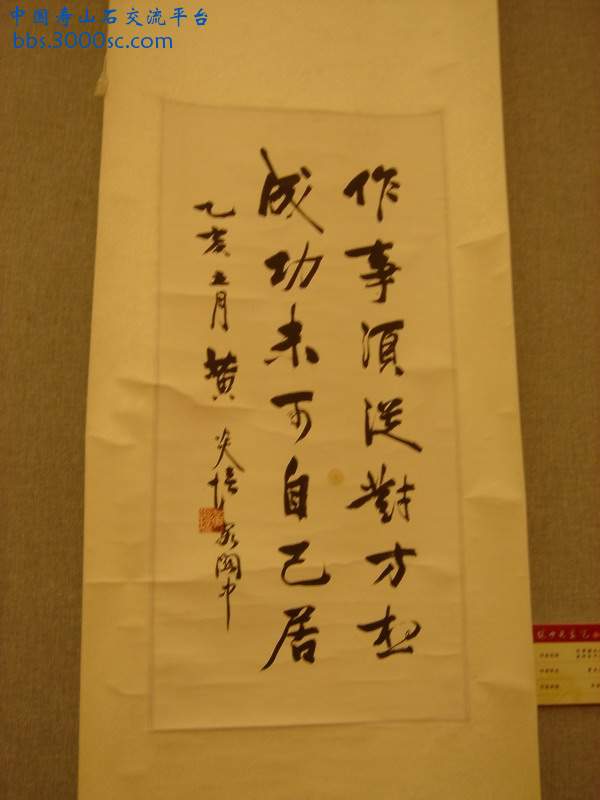 中国寿山石交流平台
bbs.3000sc.com
作事須従對方想
成功未可自己居
乙亥五月 黄炎培